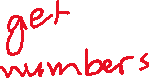 get
numbers